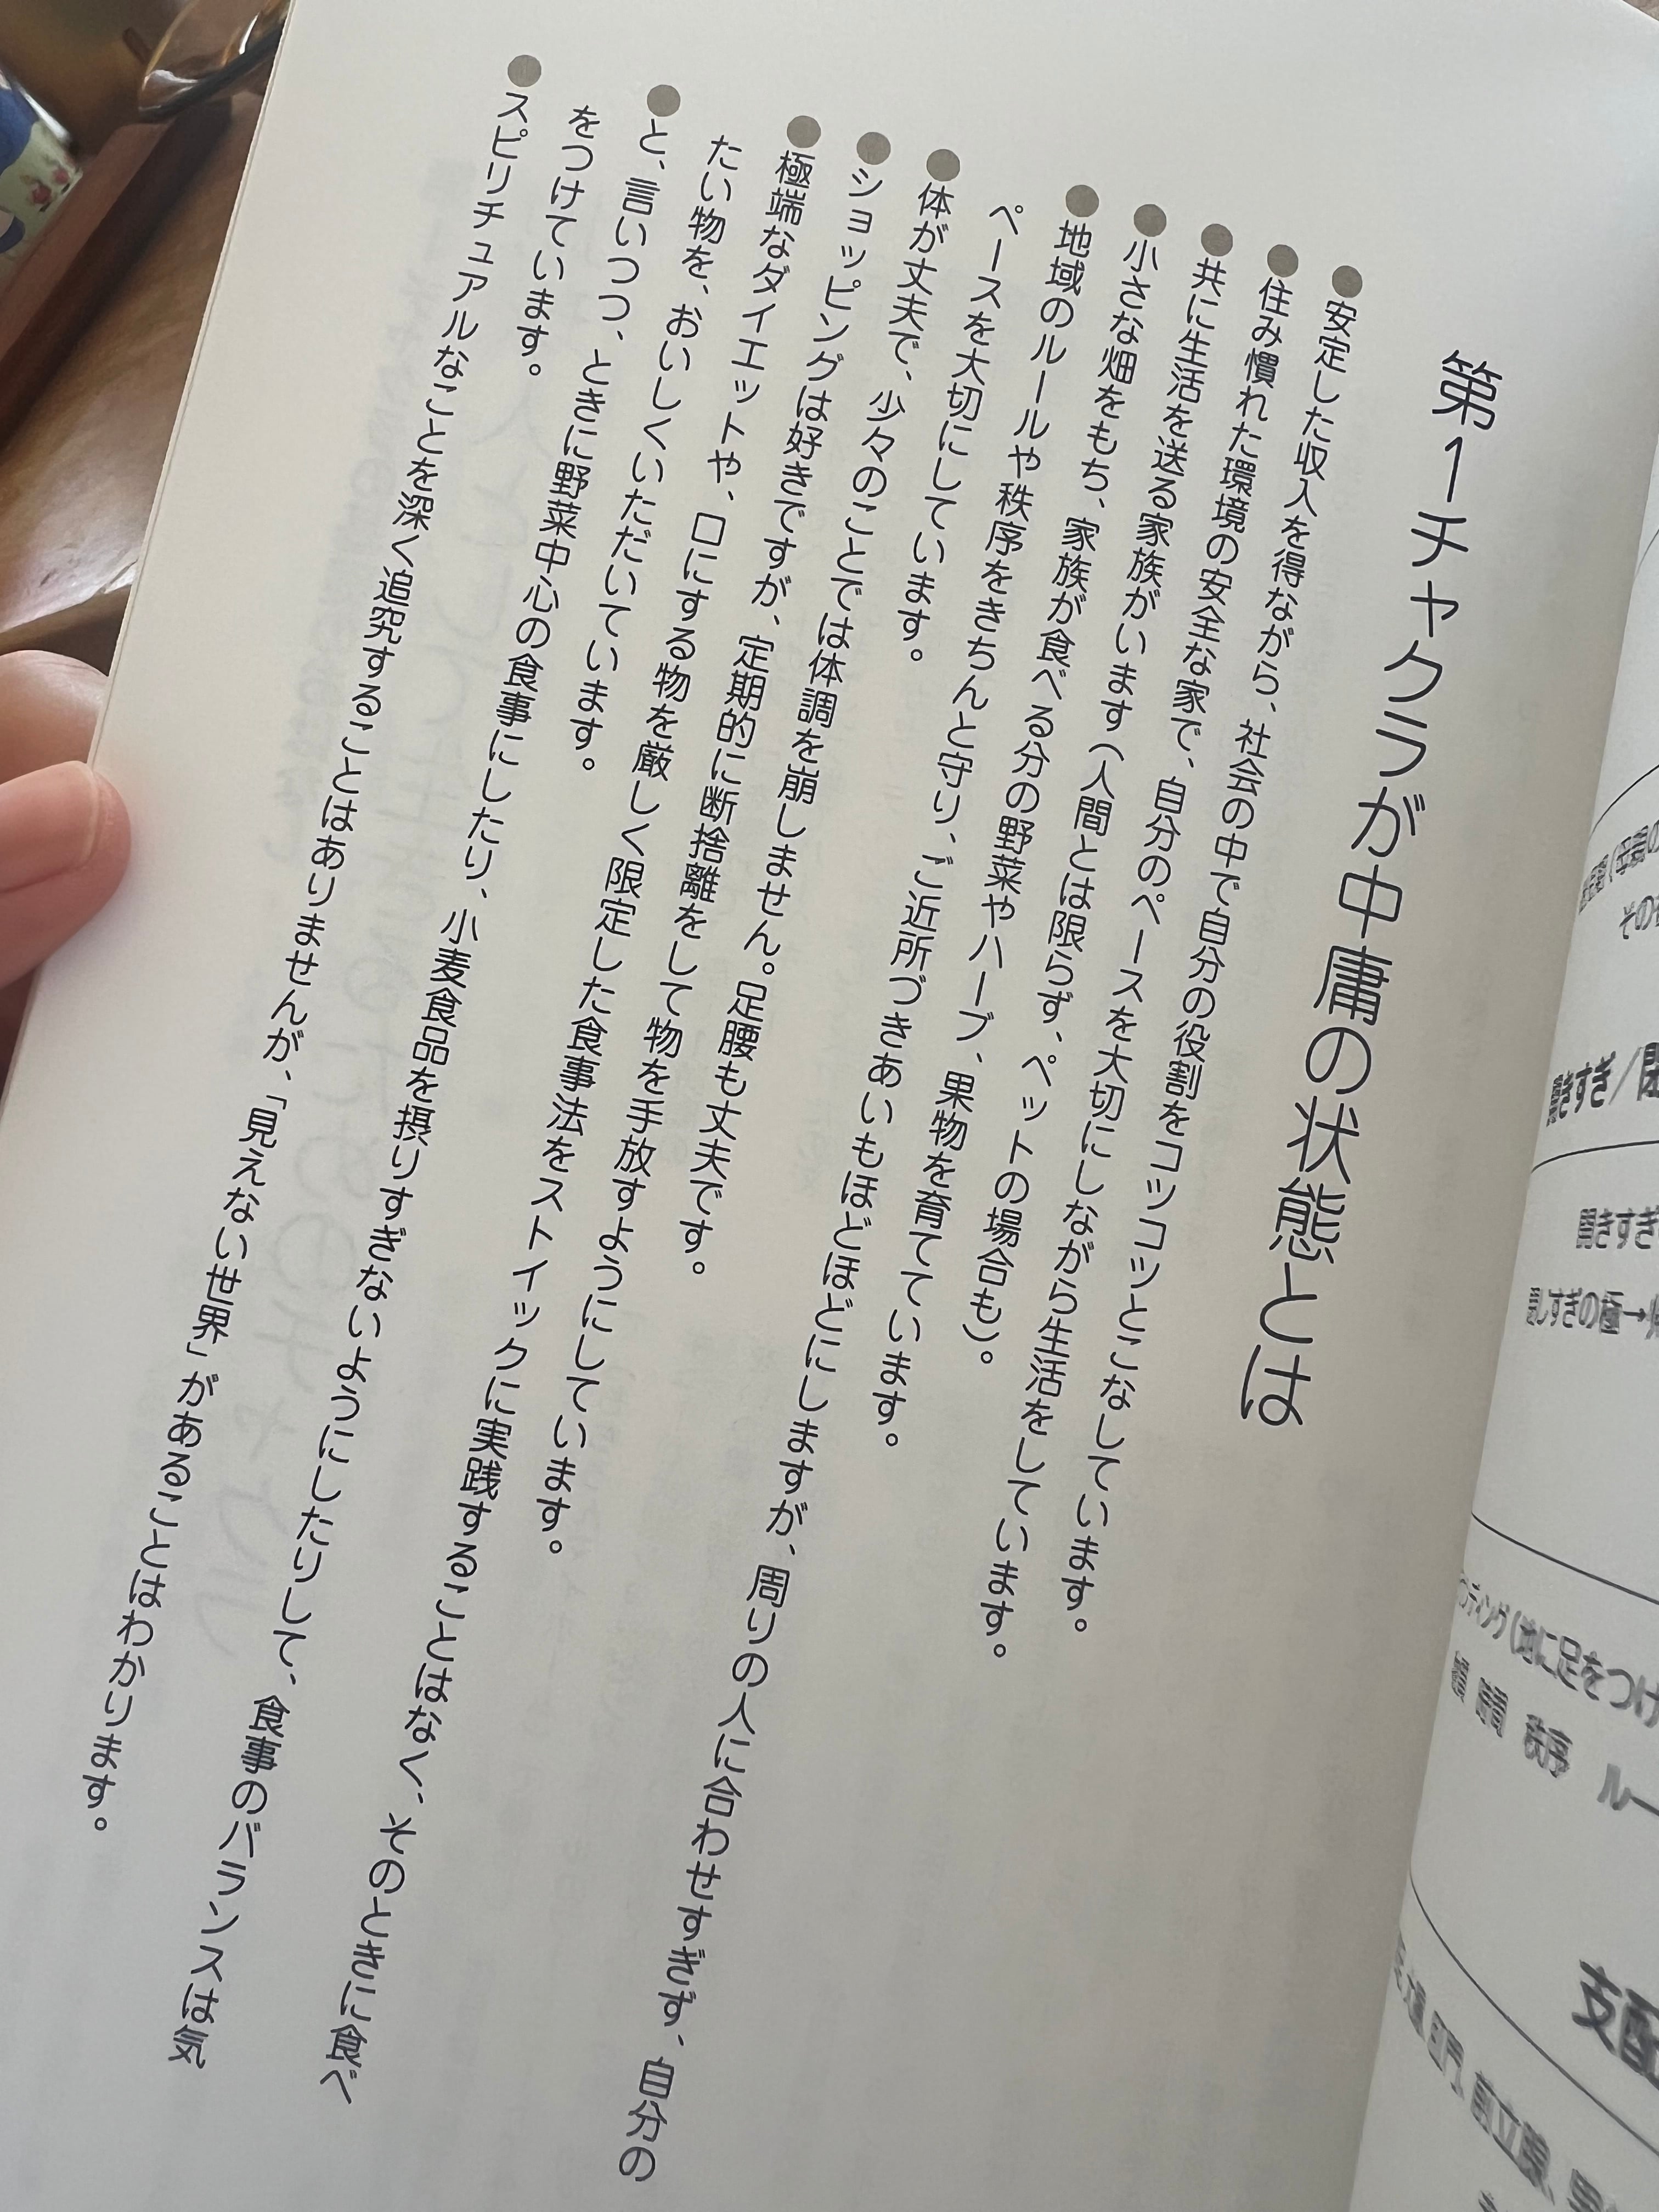 第1チャクラが中庸の状態とは
●安定した収入を得ながら、社会の中で自分の役割をコツコツとこなしています。
●住み慣れた環境の安全な家で、自分のペースを大切にしながら生活をしています。
●共に生活を送る家族がいます（人間とは限らず、ペットの場合も）。
●小さな畑をもち、家族が食べる分の野菜やハーブ、果物を育てています。
●地域のルールや秩序をきちんと守り、ご近所づきあいもほどほどにしますが、周りの人に合わせすぎず、自分の
ペースを大切にしています。
●体が丈夫で、少々のことでは体調を崩しません。足腰も丈夫です。
●ショッピングは好きですが、定期的に断捨離をして物を手放すようにしています。
●極端なダイエットや、口にする物を厳しく限定した食事法をストイックに実践することはなく、そのときに食べ
たい物を、おいしくいただいています。
●と、言いつつ、ときに野菜中心の食事にしたり、小麦食品を摂りすぎないようにしたりして、食事のバランスは気
をつけています。
●スピリチュアルなことを深く追究することはありませんが、「見えない世界」があることはわかります。
開きすぎ／閉
開きすぎ
閉じすぎの極→
ンディング（地に足をつけ
秩序 ルー
支配